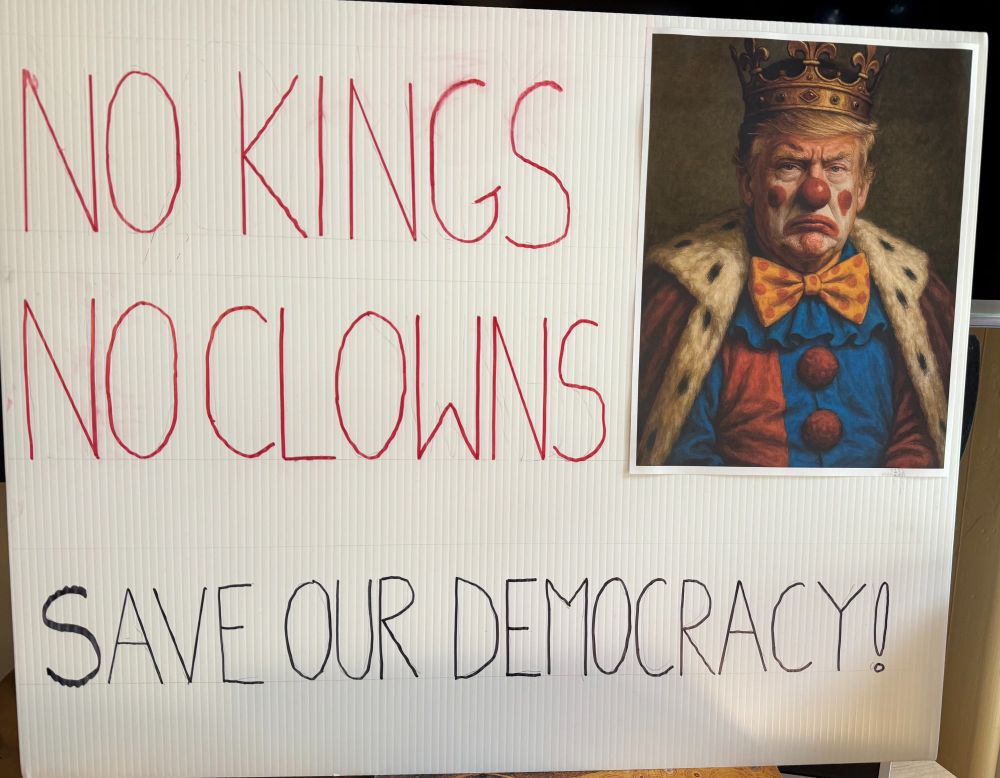 NO KINGS
NO CLOWNS
SAVE OUR DEMOCRACY!